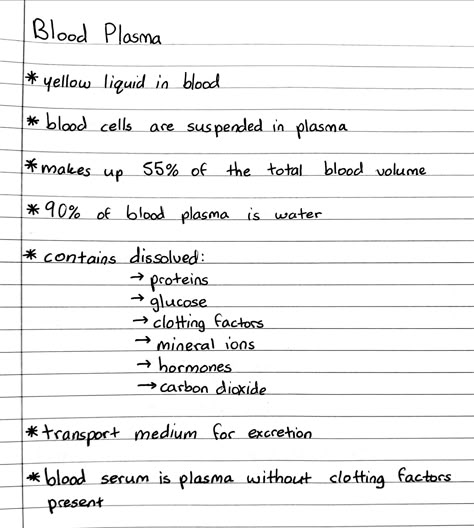 Blood Plasma
* yellow liquid in blood
* blood cells are suspended in plasma
* makes up 55% of the total blood volume
* 90% of blood plasma is water
* contains dissolved:
→ proteins
→ glucose
→ clotting factors
→ mineral ions
→ hormones
→ carbon dioxide
* transport medium for excretion
* blood serum is plasma without clotting factors
present